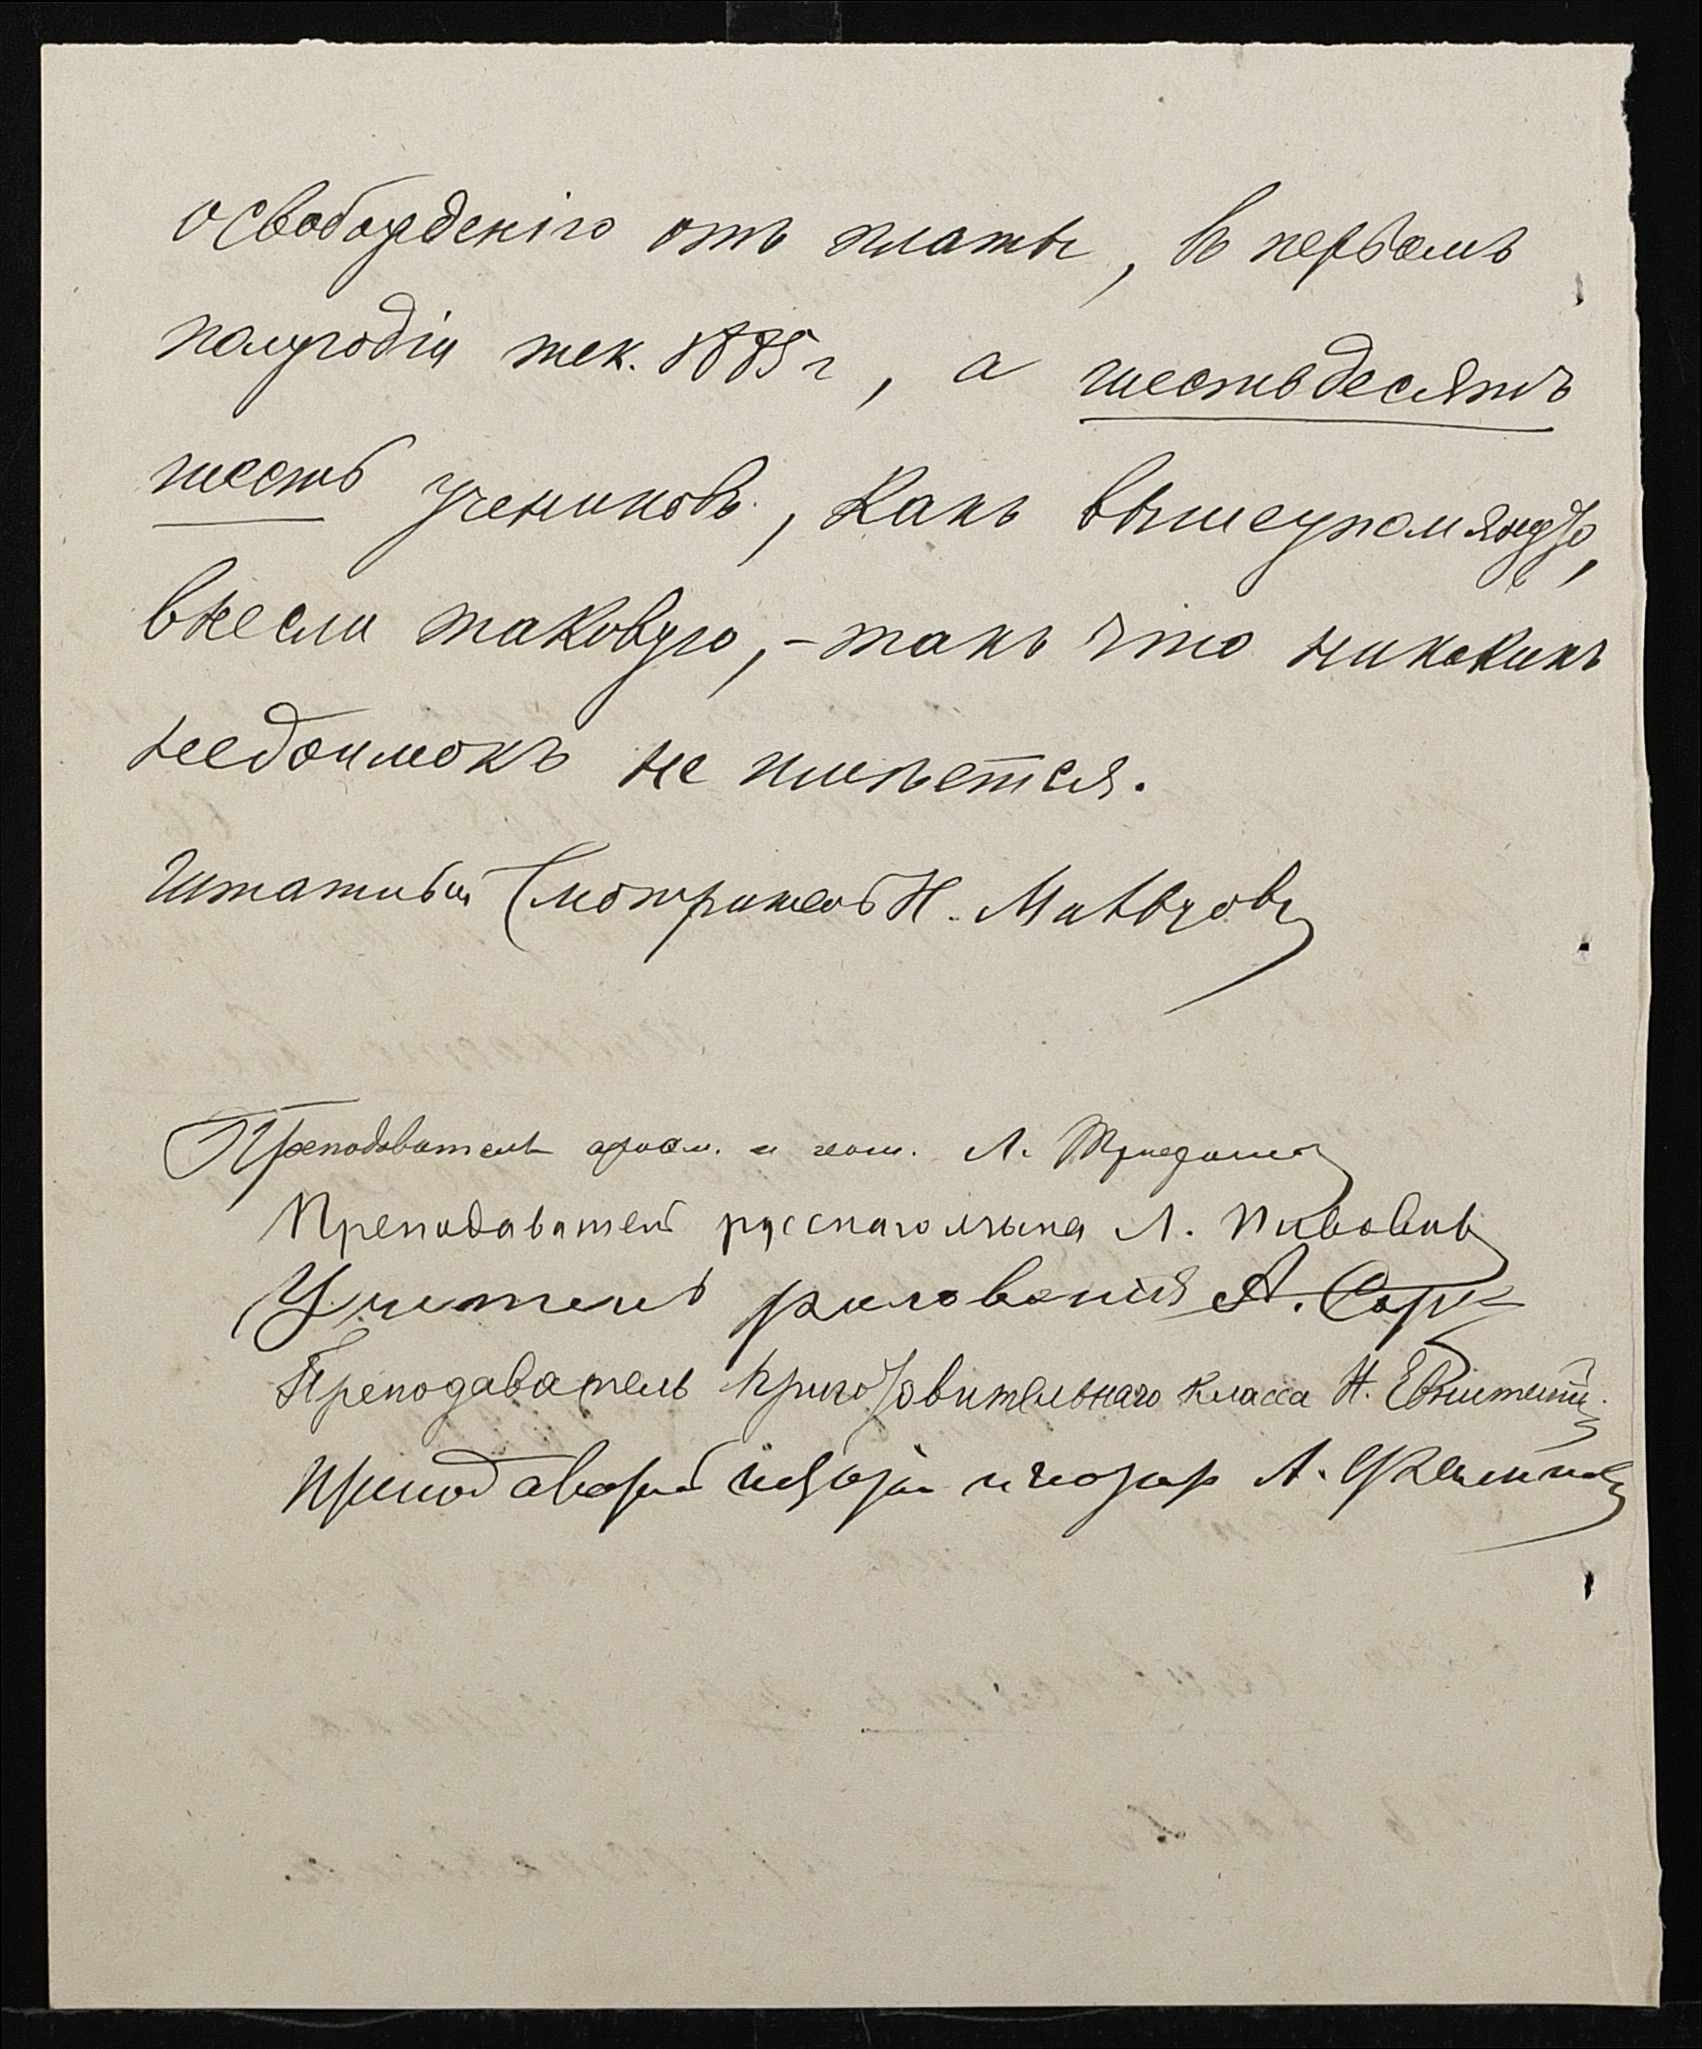 освобожденію отъ платы, въ первомъ
полугодіи тек. 1885 г, а шестьдесятъ
шесть учениковъ, какъ вышеупомянуто,
внесли таковую, - такъ что никакихъ
недоимокъ не имѣется.
Штатный Смотритель Н.
Преподаватель ариѳм. и геом. Л.
Преподаватель русскаго языка Л.
Учитель рисованія А.
Преподаватель приготовительнаго класса Н.
Преподаватель исторіи и географ А.